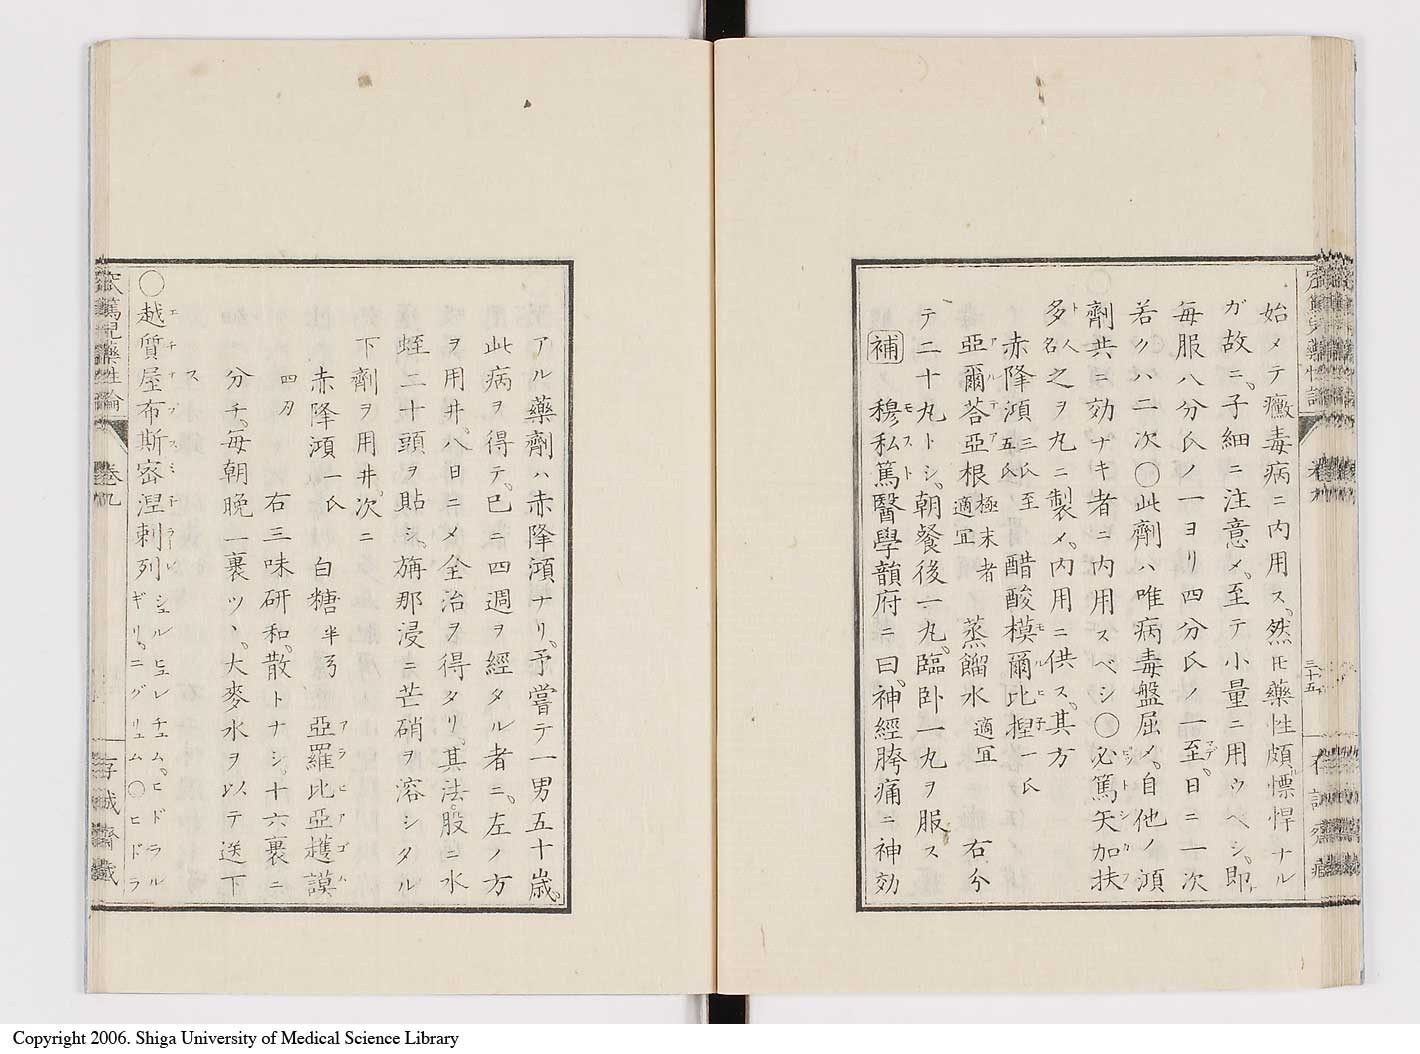 始メテ黴毒病ニ内用ス。然𪜈藥性頗慓悍ナル
ガ故ニ。子細ニ注意メ。至テ小量ニ用ウベシ。即
毎服八分氏ノ一ヨリ四分氏ノ一至。日ニ一次
若クハ二次〇此劑ハ唯病毒盤屈メ。自他ノ澒
劑共ニ効ナキ者ニ内用スベシ〇必篤矢加扶
多名之ヲ丸ニ製メ。内用ニ供ス。其方
赤降澒 三氏至五氏 醋酸模爾比捏一氏
亞爾荅亞根 極末者適冝 蒸餾水 適冝 右分
テ二十丸トシ。朝餐後一丸。臨卧一丸ヲ服ス
補 穆私篤醫學韻府ニ曰。神經胯痛ニ神効
三十五
アル藥劑ハ赤降澒ナリ。予嘗テ一男五十歳。
此病ヲ得テ。已ニ四週ヲ經タル者ニ。左ノ方
ヲ用井。八日ニメ全治ヲ得タリ。其法。股ニ水
蛭二十頭ヲ貼シ。旃那浸ニ芒硝ヲ溶シタル
下劑ヲ用井。次ニ
赤降澒 一氏 白糖 半弓 亞羅比亞護謨
四刄 右三味研和。散トナシ。十六裹ニ
分チ。毎朝晩一裹ツヽ。大麥水ヲ以テ送下
ス
〇越質屋布斯密涅刺列 ギリ。ニグリェム〇ヒドラ
卷九